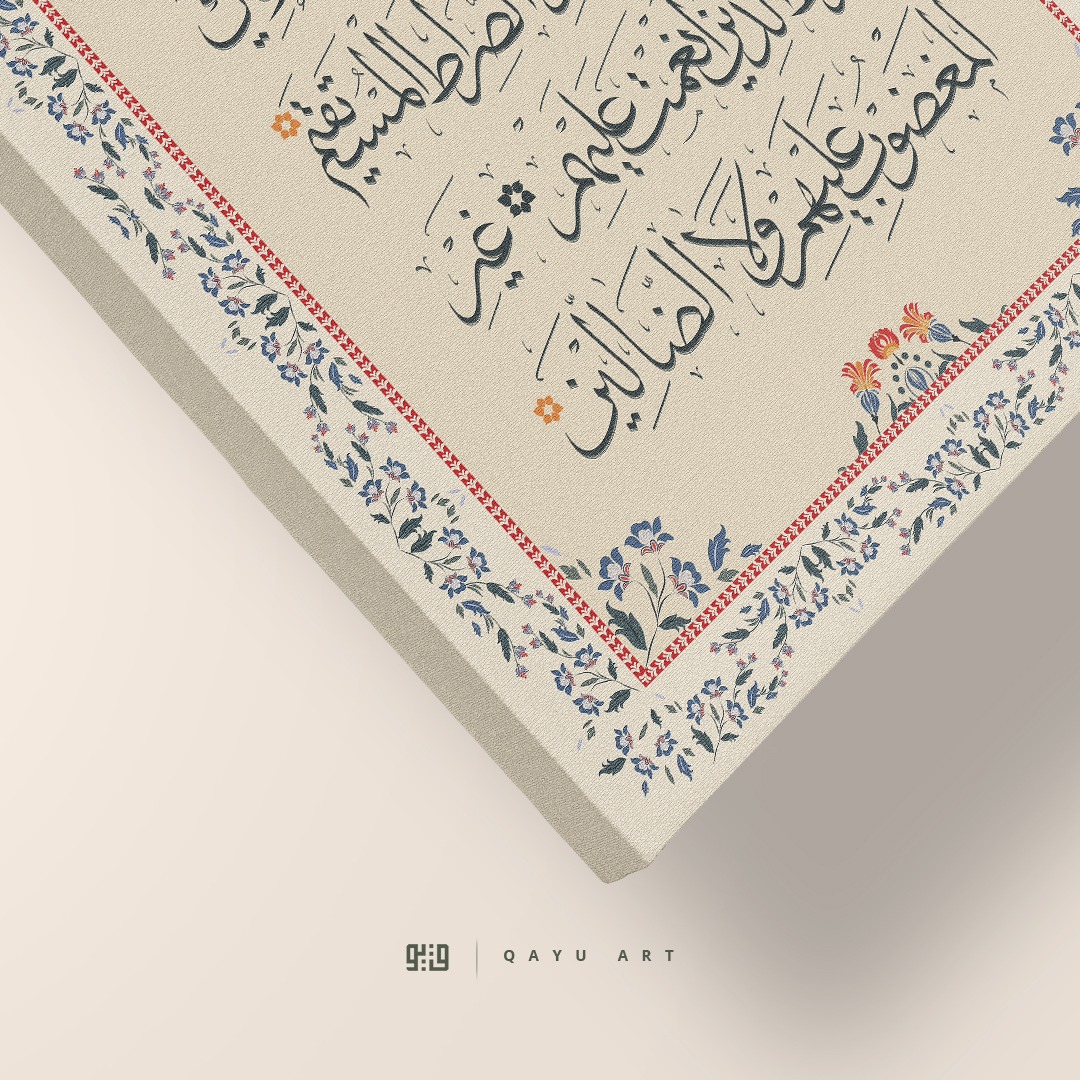 الصِّرَاطَ الْمُسْتَقِيمَ
الَّذِينَ أَنْعَمْتَ عَلَيْهِمْ غَيْرِ
الْمَغْضُوبِ عَلَيْهِمْ وَلَا الضَّالِّينَ
QAYU ART